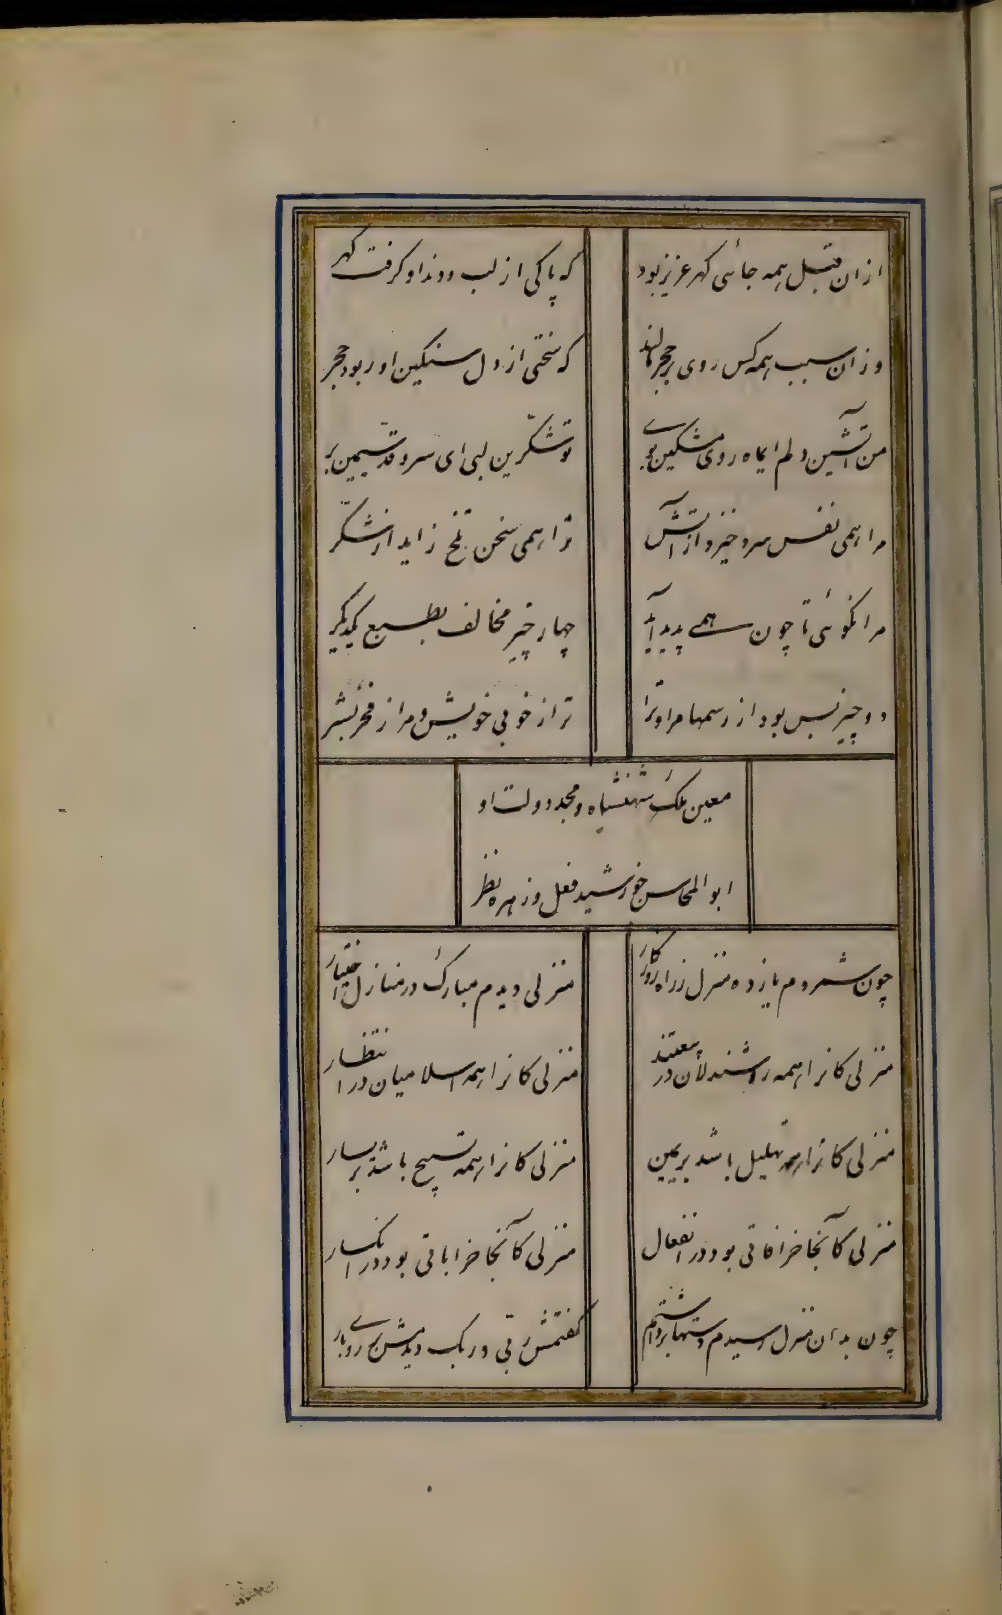 ازان قبل همه جائی گهر عزیز بود
که پاکی از لب و دندان او گرفت گهر
وزان سبب همه کس روی بر حجر مالند
که سختی از دل سنگین او ربود حجر
من آتشین دلم ای ماه روی مشکین موی
تو شکّرین لبی ای سرو قدّ سیمین بر
مرا همی نفس سرد خیزد از آتش
ترا همی سخن تلخ زاید از شکّر
مرا نگوئی تا چون همی پدید آید
چهار چیز مخالف بطبع یکدیگر
دو چیز بس بود از رسمها مرا و ترا
ترا ز خوبی خویش و مرا ز فخر بشر
معین ملک شهنشاه و مجد دولت او
ابوالمحاسن خورشید فعل و زهره نظر
چون شمردم یازده منزل ز راه روزگار
منزلی دیدم مبارک در منازل اختیار
منزلی کانرا همه روشندلان در
منزلی کانرا همه اسلامیان در انتظار
منزلی کانرا همه تهلیل باشد بر یمین
منزلی کانرا همه تسبیح باشد بر یسار
منزلی کانجا خرافاتی بود در انفعال
منزلی کانجا خراباتی بود در انکسار
چون بدان منزل رسیدم دستها برداشتم
گفتمش ربّی و ربک دیدمش روبار